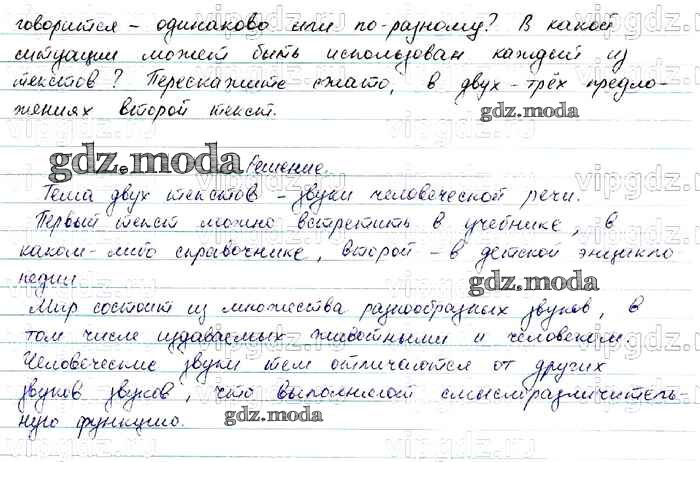 говорится – одинаково или по-разному? В какой
ситуации может быть использован каждый из
текстов? Перескажите сжато, в двух-трёх предло-
жениях второй текст.
gdz.moda
gdz.moda Решение.
Тема двух текстов – звуки человеческой речи.
Первый текст можно встретить в учебнике, в
каком-либо справочнике, второй – в детской энцикло
педии.
gdz.moda
Мир состоит из множества разнообразных звуков, в
том числе издаваемых животными и человеком.
Человеческие звуки тем отличаются от других
звуков звуков, что выполняют смыслоразличитель-
ную функцию.
gdz.moda
vipgdz.ru